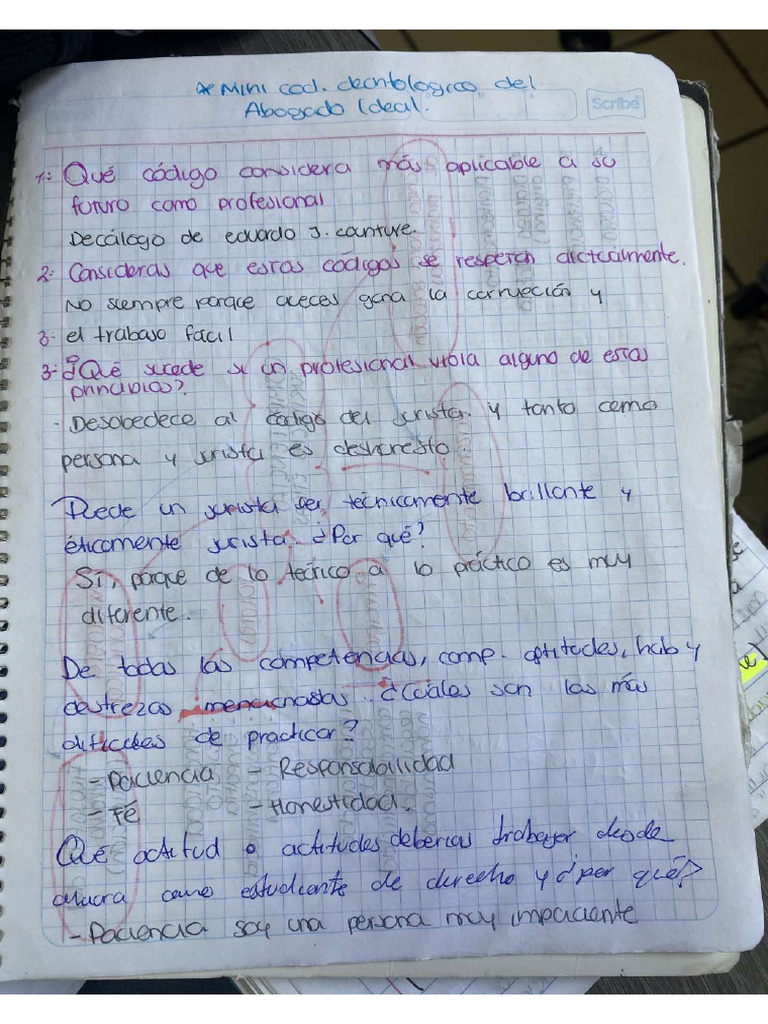 * Mini cod. deontologico del
Abogado Ideal.
Scribe
1: Qué código considera más aplicable a su
futuro como profesional
Decálogo de eduardo J. counture.
2. Consideras que estos códigos se respetan actualmente.
No siempre porque aveces gana la corrupción y
3- el trabajo facil
3- ¿Qué sucede si un profesional viola alguno de estos
principios?
- Desobedece al código del jurista. y tanto como
persona y jurista es deshonesto.
Puede un jurista ser técnicamente brillante y
éticamente jurista. ¿Por qué?
Sí, porque de lo teórico a lo práctico es muy
diferente.
De todas las competencias, comp. aptitudes, hab y
destrezas menacnadas. ¿Cuáles son las más
dificiles de practicar?
- Paciencia - Responsabilidad
- Fé - Honestidad.
Qué actitud o actitudes deberias trabajar desde
ahora como estudiante de derecho y ¿por qué?
- Paciencia soy una persona muy impaciente